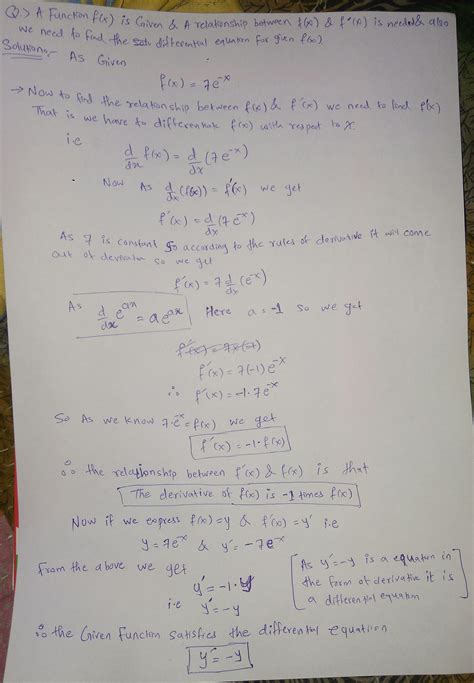 Q:> A Function f(x) is Given & A relationship between f(x) & f'(x) is needed & also
we need to find the differential equation for given f(x)
Solution:- As Given
f(x) = 7e^-x
→ Now to find the relationship between f(x) & f'(x) we need to find f'(x)
That is we have to differentiate f(x) with respect to x.
i.e
d/dx f(x) = d/dx (7e^-x)
Now As d/dx (f(x)) = f'(x) we get
f'(x) = d/dx (7e^-x)
As 7 is constant so according to the rules of derivative it will come
out of derivative so we get
f'(x) = 7 d/dx (e^-x)
As d/dx e^ax = ae^ax Here a = -1 so we get
f'(x) = 7(-1)e^-x
∴ f'(x) = -1·7e^-x
So As we know 7·e^-x = f(x) we get
f'(x) = -1·f(x)
∴ the relationship between f'(x) & f(x) is that
The derivative of f(x) is -1 times f(x)
Now if we express f(x) = y & f'(x) = y' i.e
y = 7e^-x & y' = -7e^-x
From the above we get
y' = -1·y
i.e y' = -y
[As y' = -y is a equation in
the form of derivative it is
a differential equation]
∴ the Given Function satisfies the differential equation
y' = -y